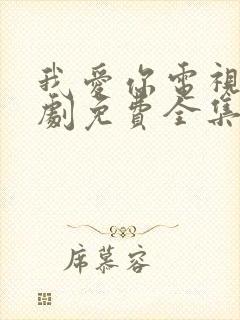 我愛你電視
劇免費全集
席慕容